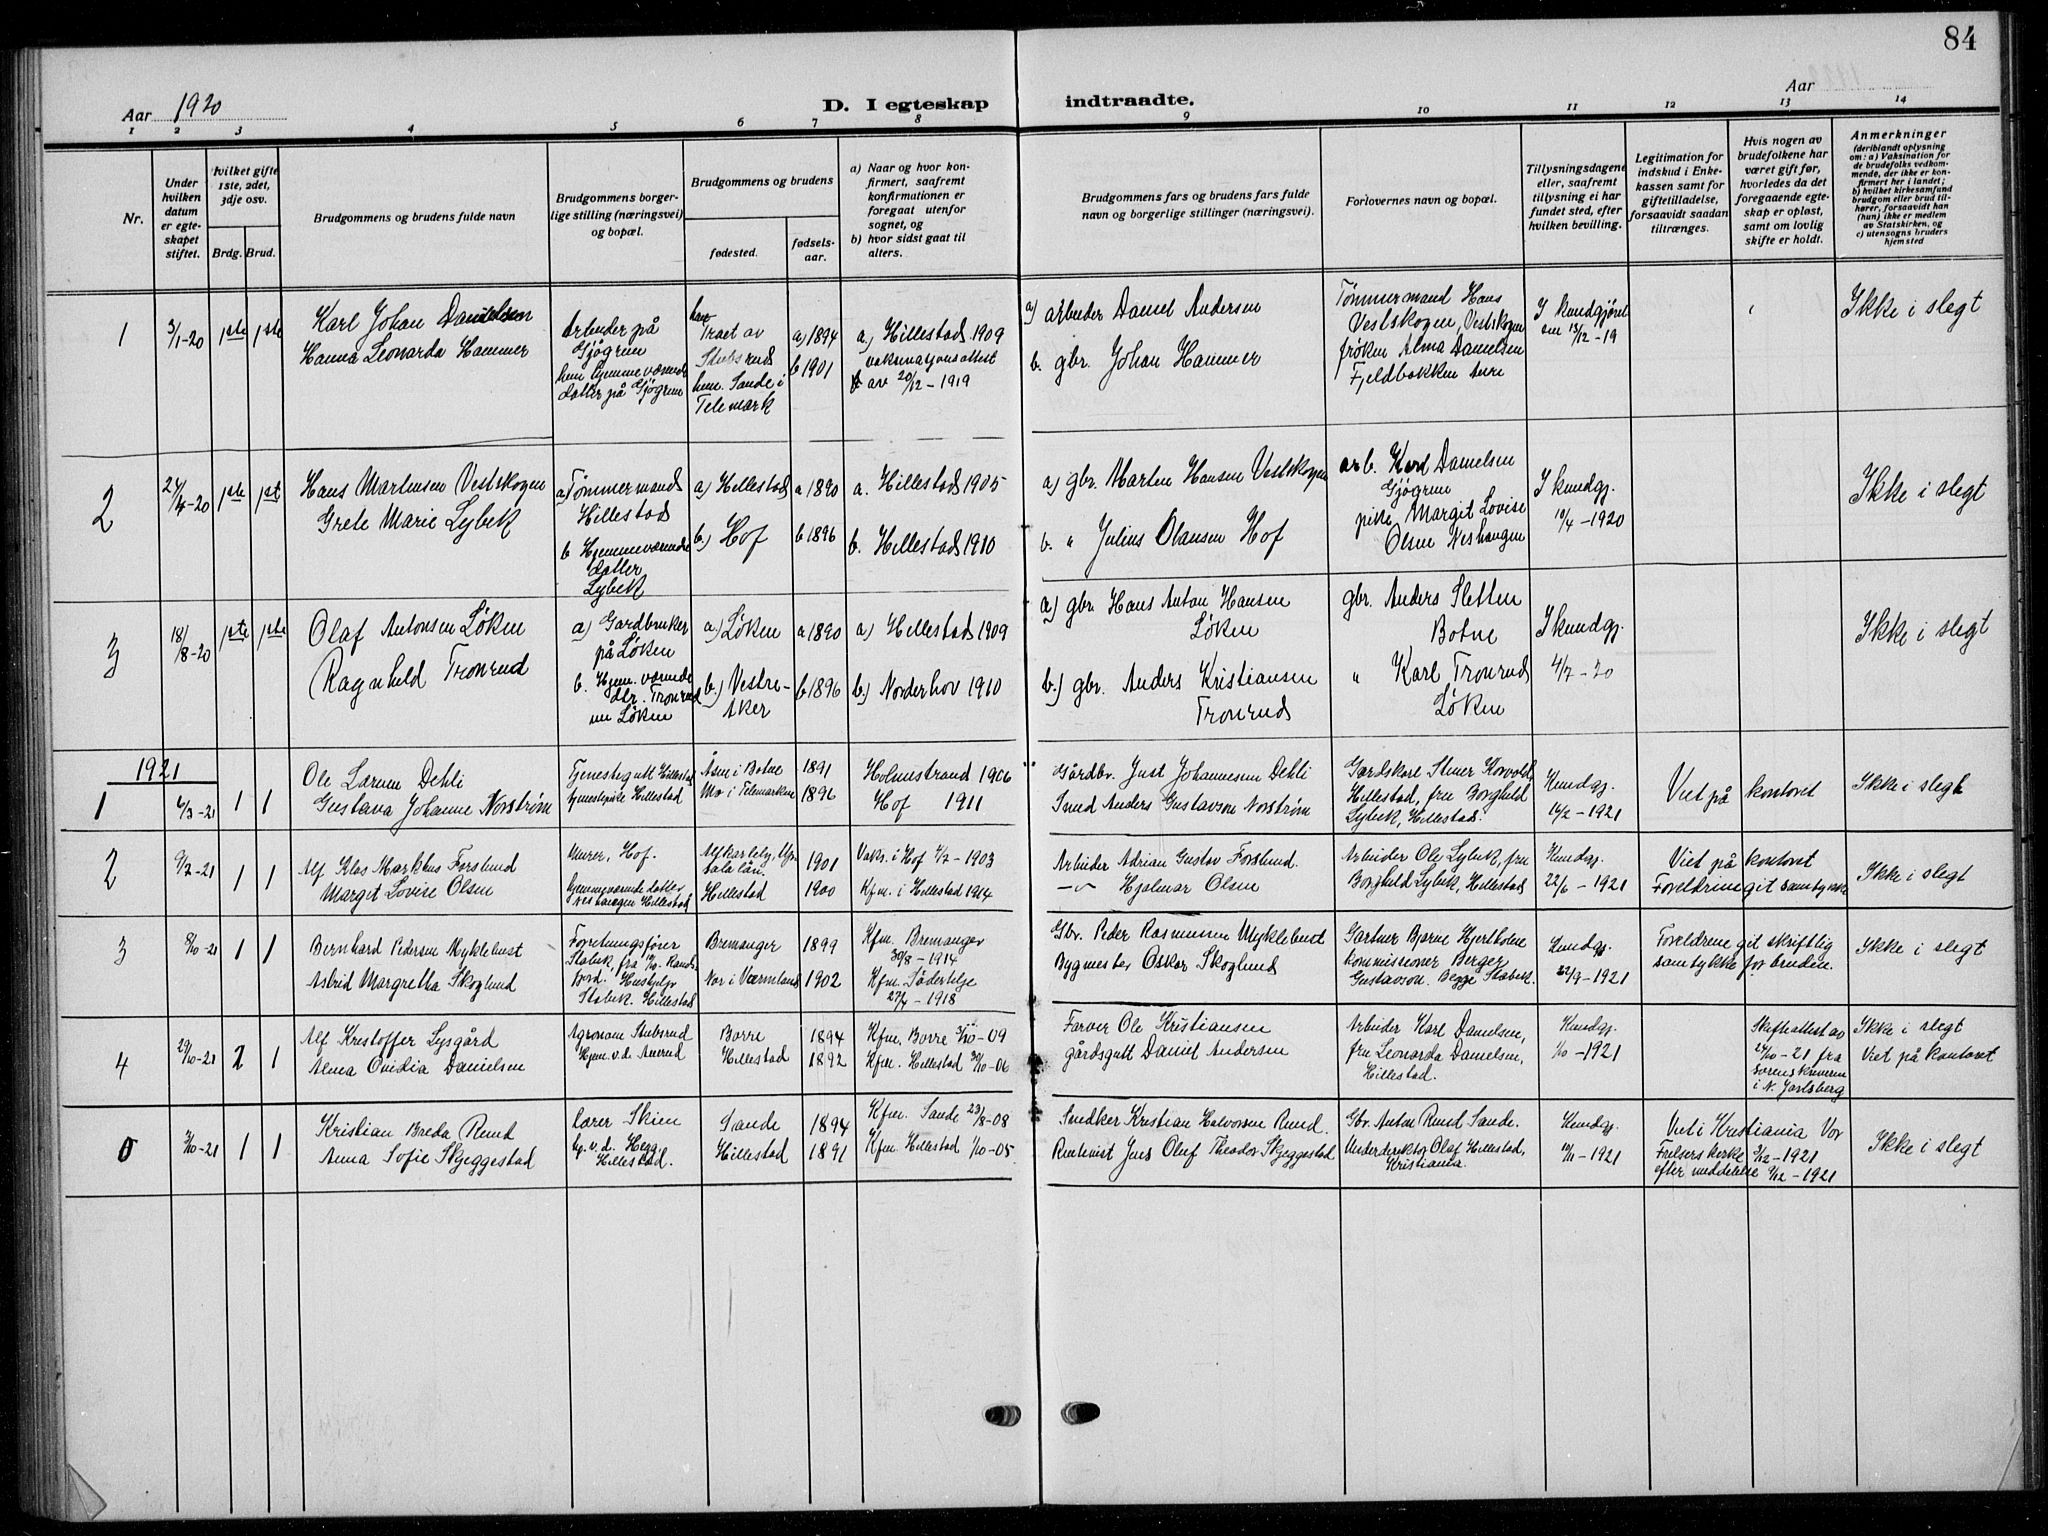 84
Aar 1920
D. I egteskap indtraadte.
Aar
1 2 3 4 5 6 7 8 9 10 11 12 13 14
Nr.
Under hvilken datum er egteskapet stiftet.
hvilket gifte 1ste, 2det, 3dje osv.
Brdg. Brud.
Brudgommens og brudens fulde navn
Brudgommens borgerlige stilling (næringsvei) og bopæl.
Brudgommens og brudens
fødested.
fødselsaar.
a) Naar og hvor konfirmert, saafremt konfirmationen er foregaat utenfor sognet, og
b) hvor sidst gaat til alters.
Brudgommens fars og brudens fars fulde navn og borgerlige stillinger (næringsvei).
Forlovernes navn og bopæl.
Tillysningsdagene eller, saafremt tillysning ei har fundet sted, efter hvilken bevilling.
Legitimation for indskud i Enkekassen samt for giftetilladelse, forsaavidt saadan tiltrænges.
Hvis nogen av brudefolkene har været gift før, hvorledes da det foregaaende egteskap er opløst, samt om lovlig skifte er holdt.
Anmerkninger
(deriblandt oplysning om: a) Vaksination for de brudefolks vedkommende, der ikke er konfirmert her i landet; b) hvilket kirkesamfund brudgom eller brud tilhører, forsaavidt han (hun) ikke er medlem av Statskirken, og c) utensogns bruders hjemsted
1 3/1-20 1ste 1ste
Karl Johan Danielsen
Hanna Leonarda Hammer
Arbeider på Gjøgrem
hem hjemmeværende datter på Gjøgrem
Traet av Stubsrud
hem. Sande i Telemark
a) 1894
b 1901
a) Hillestad 1909
vaksinasjonsattest
av 20/12 - 1919
a) arbeider Daniel Andersen
b. gbr. Johan Hammer
Tømmermand Hans Vestskogen, Vestskogen
frøken Alma Danielsen
Fjeldbakken
I kundgjørel
13/12 - 19
Ikke i slegt
2 24/4-20 1ste 1st
Hans Martinsen Vestskogen
Grete Marie Lybek
a) Tømmermand Hillestad
b Hjemmeværende datter Lybek
a) Hillestad
b.) Hof
a 1890
b 1896
a. Hillestad 1905
b. Hillestad 1910
a) gbr. Martin Hansen Vestskogen
b. " Julius Olausen Hof
arb. Karl Danielsen Gjøgrem
pike Margit Lovise Olsen
I kundgj.
10/4 - 1920
Ikke i slegt
3 18/8-20 1ste 1ste
Olaf Antonsen Løken
Ragnhild Tronrud
a) Gardbruker på Løken
b. Hjem. værende dtr. Tronrud nu Løken
a) Løken
b.) Vestre-Aker
a 1890
b 1896
a) Hillestad 1909
b) Norderhov 1910
a) gbr. Hans Anton Hansen Løken
b.) gbr. Anders Kristiansen Tronrud
gbr. Anders Sletten Botne
" Karl Tronrud Løken
I kundgj.
4/7 - 20
Ikke i slegt
1921
1 6/3-21 1 1
Ole Larum Dehli
Gustava Johanne Norstrøm
Tjenestegutt Hillestad
tjenestepike Hillestad
Åsne i Botne
Mo i Telemarken
1891
1896
Holmestrand 1906
Hof 1911
Gårdbr. Just Johannesen Dehli
Smed Anders Gustavson Norstrøm
Gardskarl Stener Korvold,
Hillestad, fru Borghild
Lybek, Hillestad.
Kundgj.
14/2 - 1921
Viet på kontoret
Ikke i slegt
2 9/7-21 1 1
Alf Klas Markus Forslund
Margit Lovise Olsen
Murer, Hof.
hjemmeværende datter
Hillestad
Alfkarleby, Upsala län.
Hillestad
1901
1900
Vaks. i Hof 4/2 - 1903
Kfm. i Hillestad 1914
Arbeider Adrian Gustav Forslund.
Hjalmar Olsen
Arbeider Ole Lybek, fru
Borghild Lybek, Hillestad
Kundgj.
22/6 - 1921
Viet på kontoret
Foreldrene git samtykke
Ikke i slegt
3 8/10-21 1 1
Bernhard Pedersen Myklebust
Astrid Margretha Skoglund
Forretningsfører
Stabek
Hushjelp
Stabek. Hillestad
Bremanger
Nor i Værmland
1899
1902
Kfm. Bremanger
30/8 - 1914
Kfm. Söderteljе
27/4 - 1918
Gbr. Peder Rasmussen Myklebust
Bygmester Oskar Skoglund
Gartner Bjarne Hjertholm
kommissioner Berger
Gustavson. Begge Stabek.
Kundgj.
22/9 - 1921
Foreldrene git skriftlig
samtykke for bruden.
Ikke i slegt
4 29/10-21 2 1
Alf Kristoffer Lysgård
Alma Ovidia Danielsen
Agronom Stubsrud
Hjem. v. d. Anerud
Borre
Hillestad
1894
1892
Kfm. Borre 3/10 - 09
Kfm. Hillestad 30/10 - 06
Farver Ole Kristiansen
gårdsgutt Daniel Andersen
Arbeider Karl Danielsen,
fru Leonarda Danielsen,
Hillestad.
Kundgj.
1/10 - 1921
Skifteattest av
24/10 - 21 fra
sorenskriveren
i N. Jarlsberg
Ikke i slegt
Viet på kontoret
5 /10-21 1 1
Kristian Breda Rund
Anna Sofie Skjeggestad
Lærer Skien
hj. v. d. Hegg, Hillestad.
Sande
Hillestad
1894
1891
Kfm. Sande 23/8 - 08
Kfm. Hillestad 1/10 - 05
Snedker Kristian Halvorsen Rund.
Jens Olef Theodor Skjeggestad
Gbr. Anton Rund Sande.
Underdirektør Olaf Hillestad,
Kristiania.
Kundgj.
10/11 - 1921
Viet i Kristiania Vor
Frelsers kirke 3/12 - 1921
efter meddelelse 9/12 - 1921
Ikke i slegt